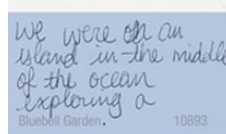 we were on an
island in the middle
of the ocean
exploring a
Bluebell Garden. 10893